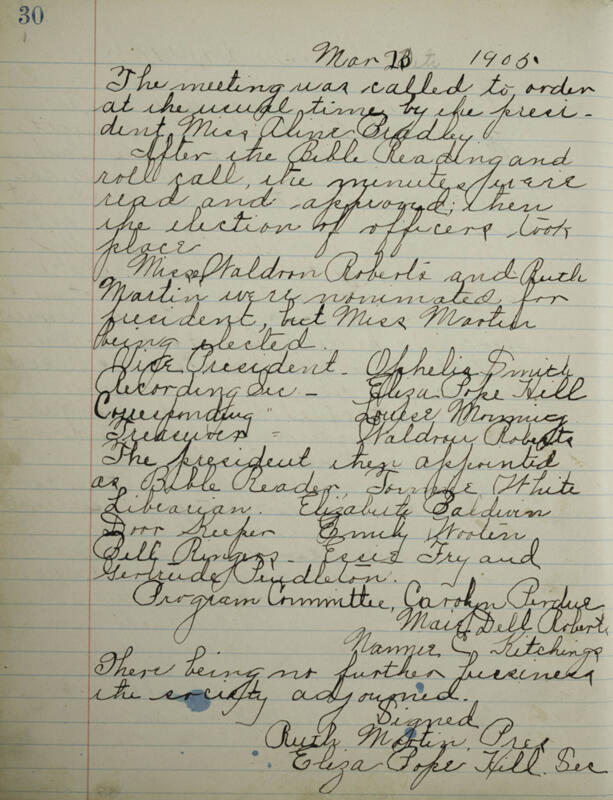 30
Mar 1905.
The meeting was called to order
at the usual time by the presi-
dent, Miss Aline Bradley
After the Bible Reading and
roll call, the minutes were
read and approved; then
the election of officers took
place
Misses Waldron Roberts and Ruth
Martin were nominated for
president, but Miss Martin
being elected.
Vice President - Ophelia Smith
Recording Sec - Eliza Pope Hill
Corresponding " Louise
Treasurer - Waldron Roberts
The president then appointed
as Bible Reader, Tommie White
Librarian. Elizabeth Baldwin
Door Keeper Emily Wooten
Bell Ringers - Essie Fry and
Gertrude Pendleton.
Program Committee, Carolyn Perdue
Dell Roberts
Nannie C Kitchings
There being no further business
the society adjourned.
Signed
Ruth Martin, Pres
Eliza Pope Hill. Sec